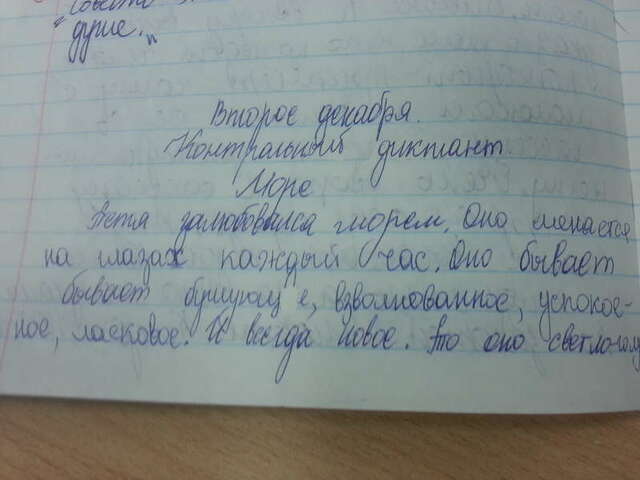 душе."
Второе декабря.
Контрольный диктант
Море
Петя залюбовался морем. Оно менается
на глазах каждый час. Оно бывает
бывает бушующ е, взволнованное, успокое-
ное, ласковое. И всегда новое. То оно светло-голу